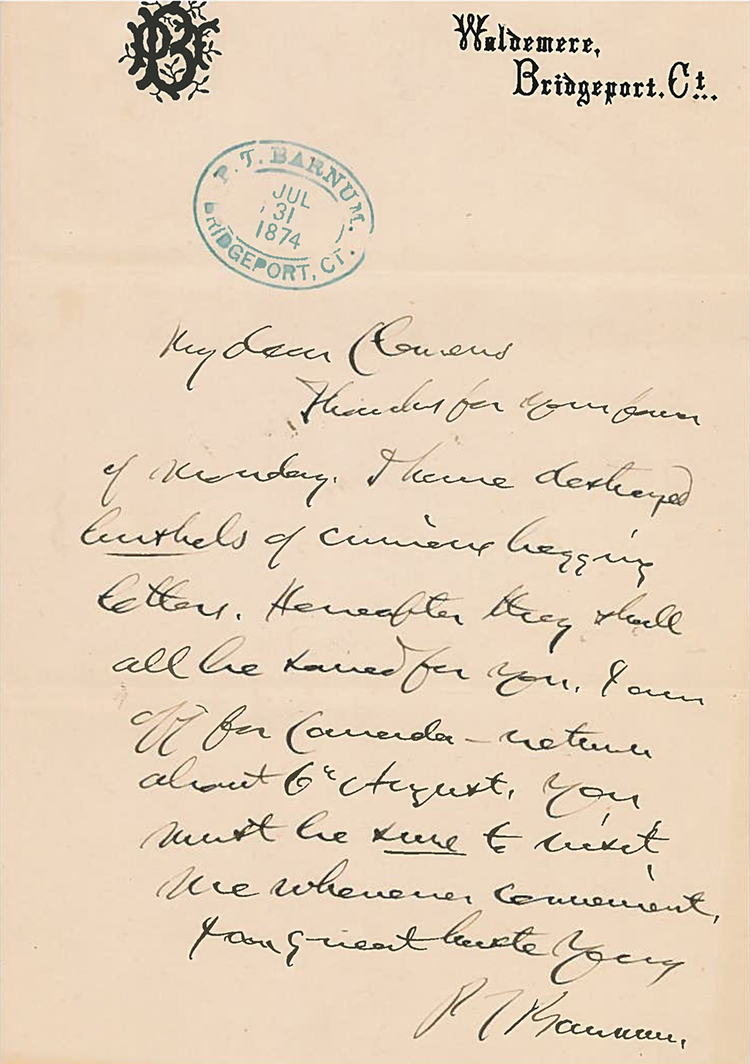 PTB
Waldemere,
Bridgeport, Ct.
P. T. BARNUM.
JUL
31
1874
BRIDGEPORT, CT.
My dear Clemens
Thanks for your favor
of Monday. I have destroyed
bushels of curious begging
letters. Hereafter they shall
all be saved for you. I am
off for Canada – return
about 6th August. You
must be sure to visit
me whenever convenient,
great haste Yours
P T Barnum.